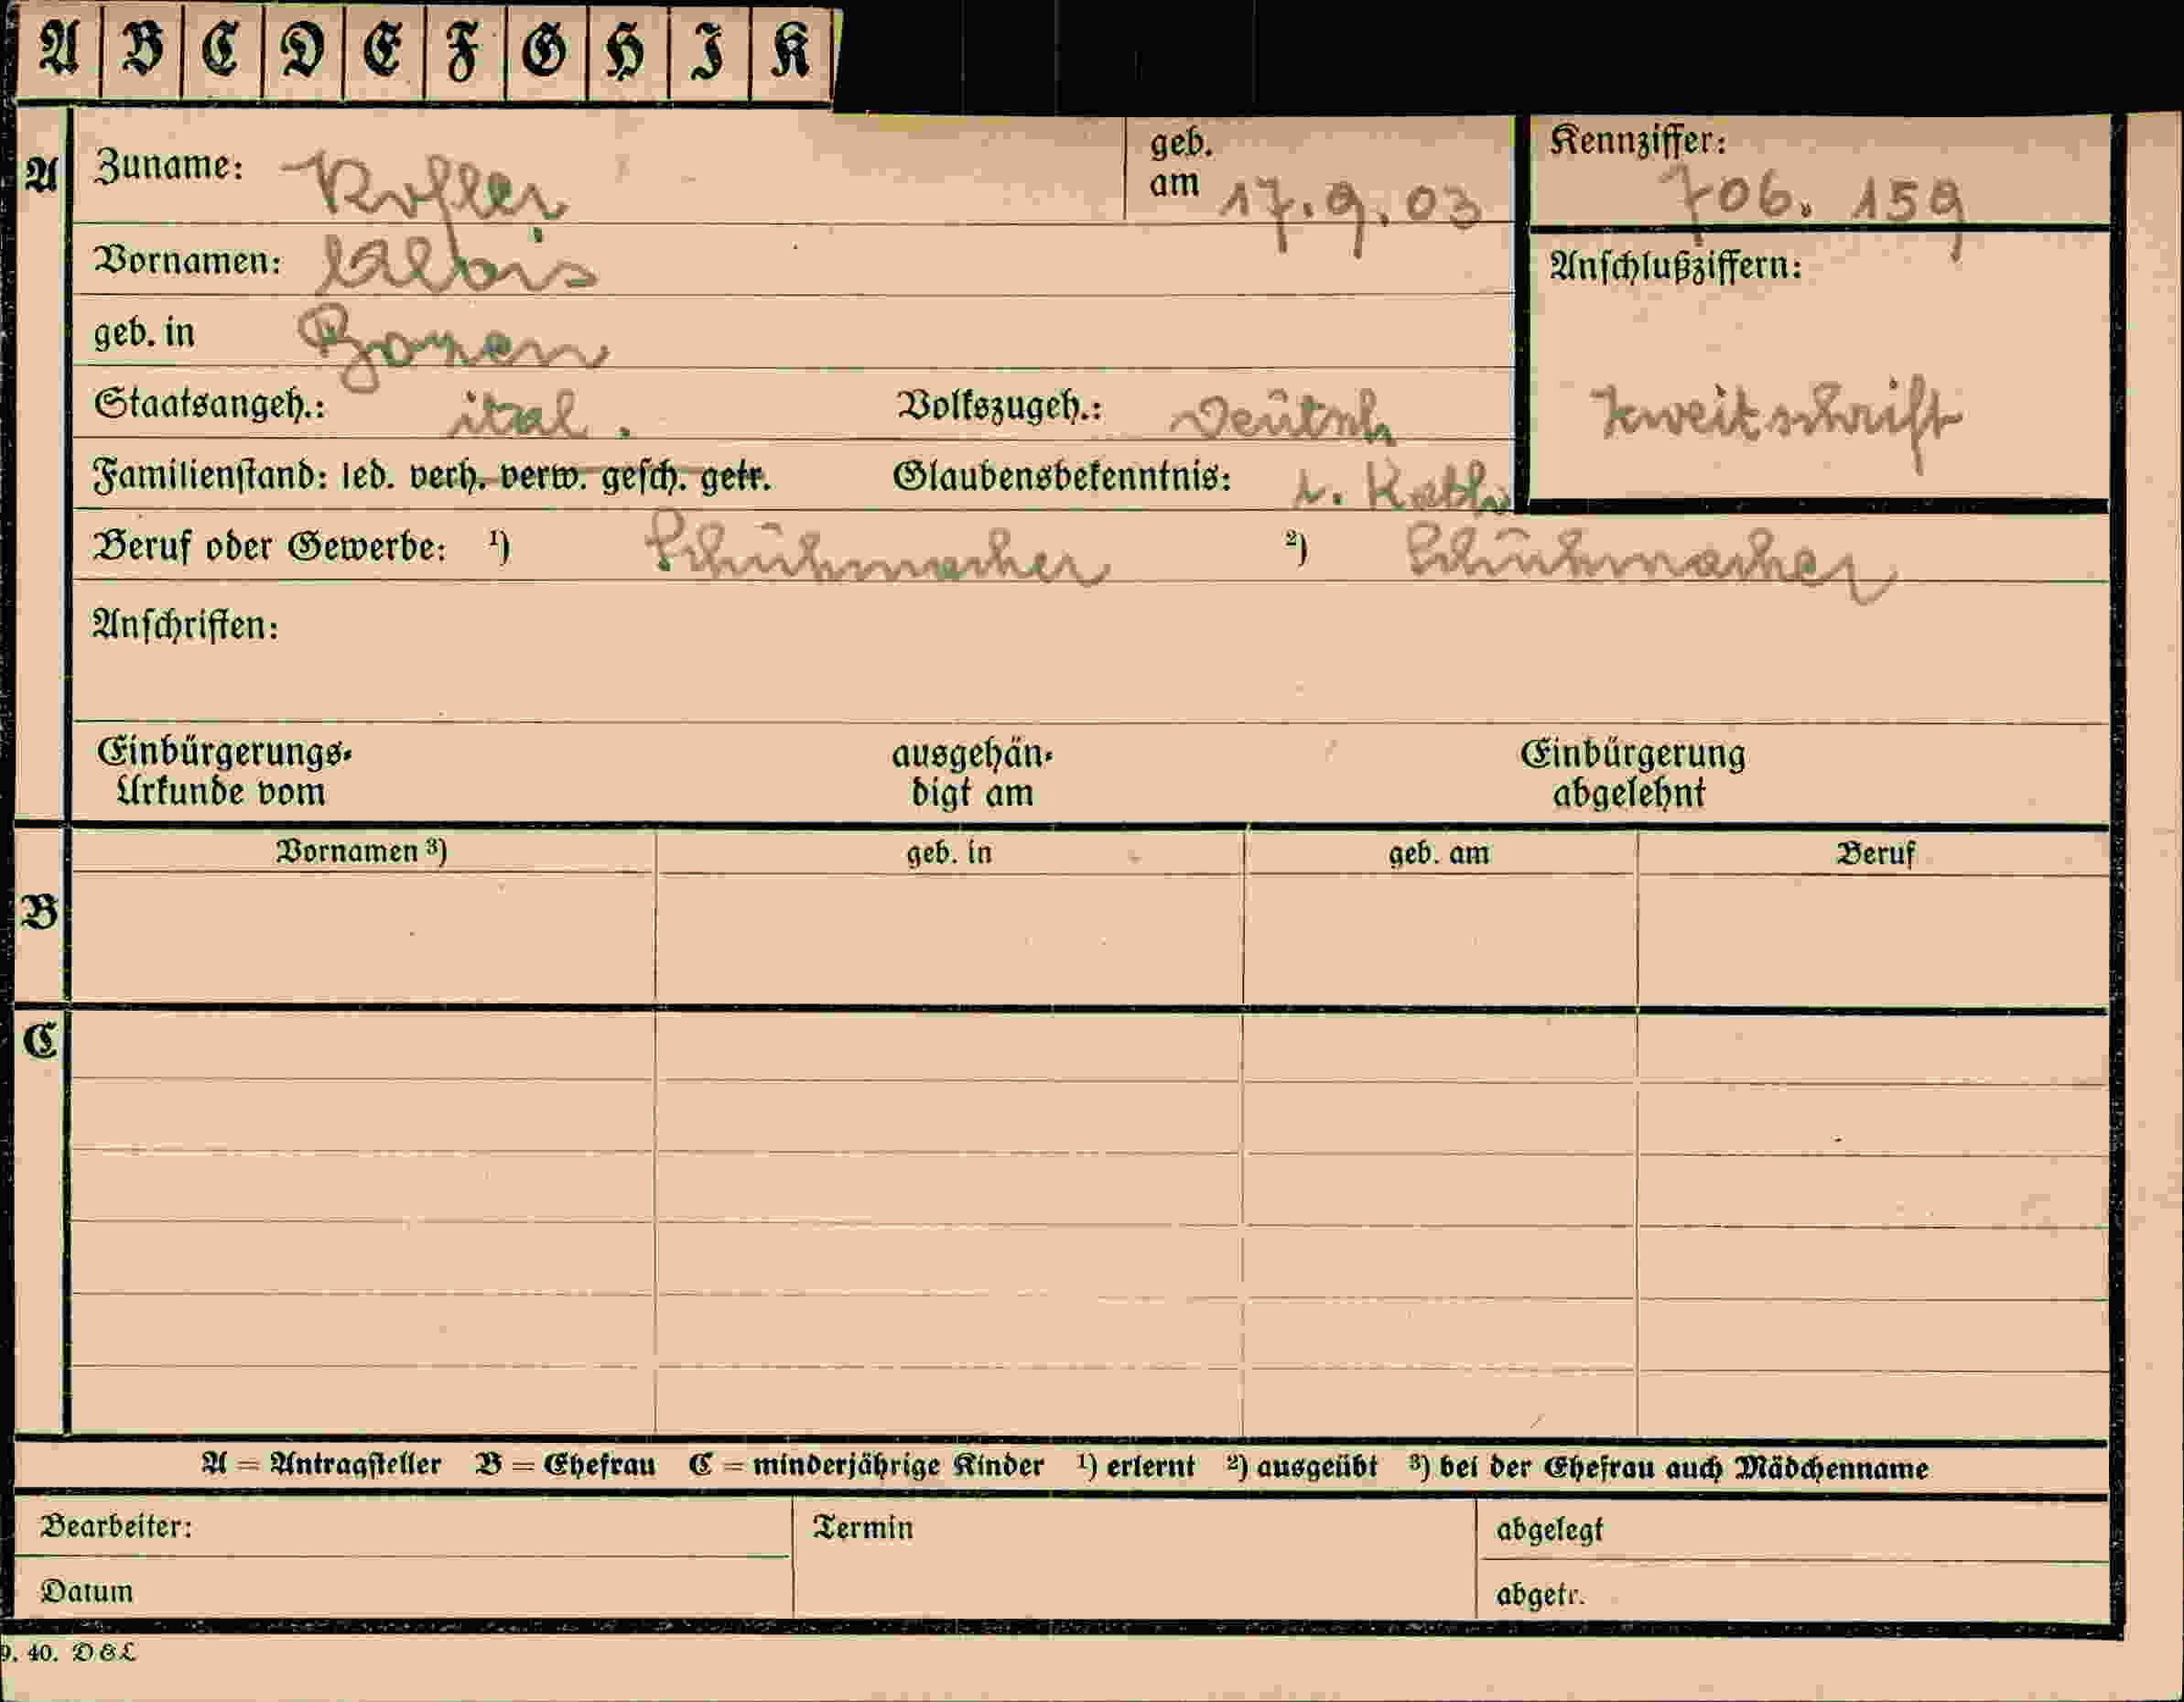 A B C D E F G H I K
A Zuname: Kofler geb. am 17.9.03 Kennziffer: 706.159
Vornamen: Alois Anschlußziffern:
geb. in Bozen
Staatsangeh.: ital. Volkszugeh.: Deutsch Zweitschrift
Familienstand: led. verh. verw. gesch. getr. Glaubensbekenntnis: r. Kath.
Beruf oder Gewerbe: ¹) Schuhmacher ²) Schuhmacher
Anschriften:
Einbürgerungs- ausgehän- Einbürgerung
Urkunde vom digt am abgelehnt
Vornamen ³) geb. in geb. am Beruf
B
C
A = Antragsteller B = Ehefrau C = minderjährige Kinder ¹) erlernt ²) ausgeübt ³) bei der Ehefrau auch Mädchenname
Bearbeiter: Termin abgelegt
Datum abgetr.
9. 40. D & L